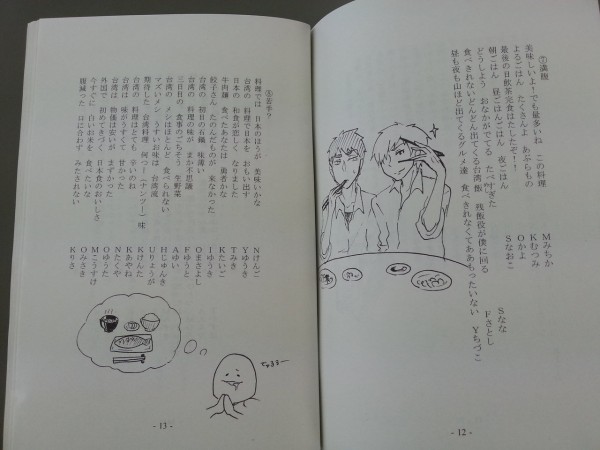 ②満腹
美味しいよ!でも量多いね この料理 Mみちか
よるごはん たくさんよ あぶらもの Kむつみ
最後の日飲茶完食はたしたぞ!! Oかよ
朝ごはん 昼ごはんごはん 夜ごはん Sなおこ
どうしよう おなかがでてる たべすぎた Sなな
食べきれないどんどん出てくる台湾飯 残飯役が僕に回る Fさとし
昼も夜も山ほど出てくるグルメ達 食べきれなくてああもったいない Yちづこ
- 12 -
③苦手?
料理では 日本のほうが 美味いかな Nけんご
台湾の 料理で日本を おもい出す Yゆうき
日本の 和食が恋しく なりました Tみき
牛肉麺 食べたあなたは 勇者かな Kたいご
餃子さん たのんだものが 来なかった Iゆうき
台湾の 初日の石鍋 味薄い Oまさよし
台湾の 料理の味が まか不思議 Fゆうと
三日目の 食事のごちそう 生野菜 Aゆい
台湾の メシはほとんど 食べられない Hじゅんき
マズいメシ お味はマズい 台湾流 Uりょうが
期待した 台湾料理 何つー(ナンツー)味 Kけんた
台湾の 料理はとても 辛いのね Kあやね
台湾は 味がうすくて 甘かった Oゆうた
台湾は 物価は安いが まずかった Nたくや
外国で 初めてきづく 日本食のおいしさ Mこうすけ
今すぐに 白いお米を 食べたいな Oみさき
親減った 口に合わず みたされない Kりさ
- 13 -